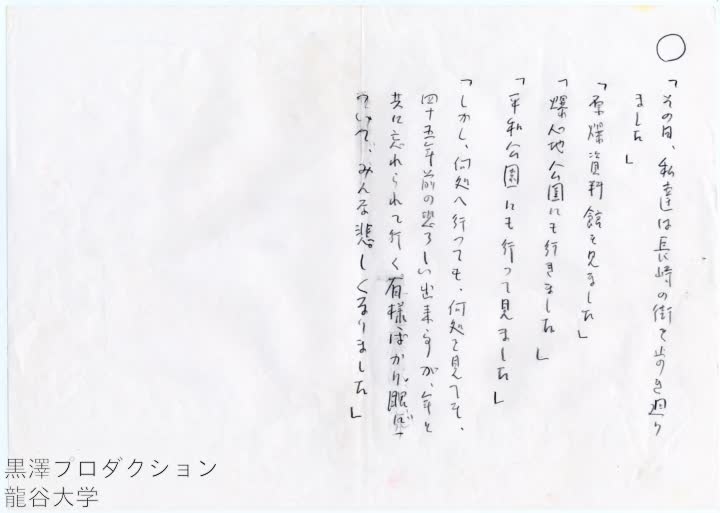 ○
「その日、私達は長崎の街を歩き廻り
ました」
「原爆資料館を見ました」
「爆心地公園にも行きました」
「平和公園にも行って見ました」
「しかし、何処へ行っても、何処を見ても、
四十五年前の恐ろしい出来事が、年と
共に忘れられて行く有様ばかり眼に
ついて、みんな悲しくなりました」
黒澤プロダクション
龍谷大学